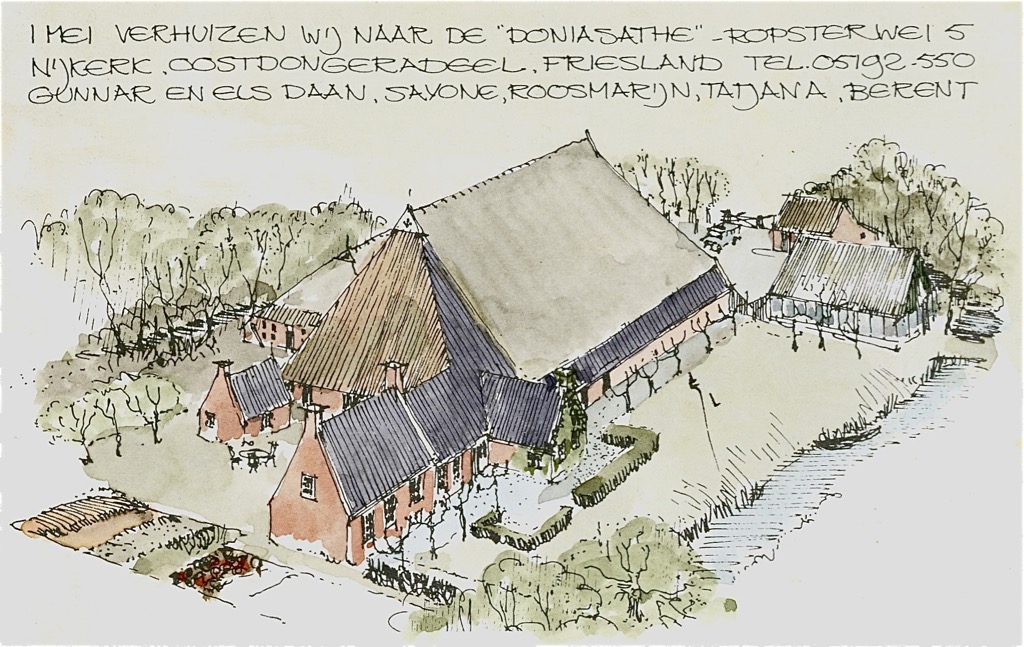 1 MEI VERHUIZEN WIJ NAAR DE "DONIASATHE" - ROPSTERWEI 5
NIJKERK, OOSTDONGERADEEL, FRIESLAND TEL. 05192-550
GUNNAR EN ELS DAAN, SAYONE, ROOSMARIJN, TATJANA, BERENT